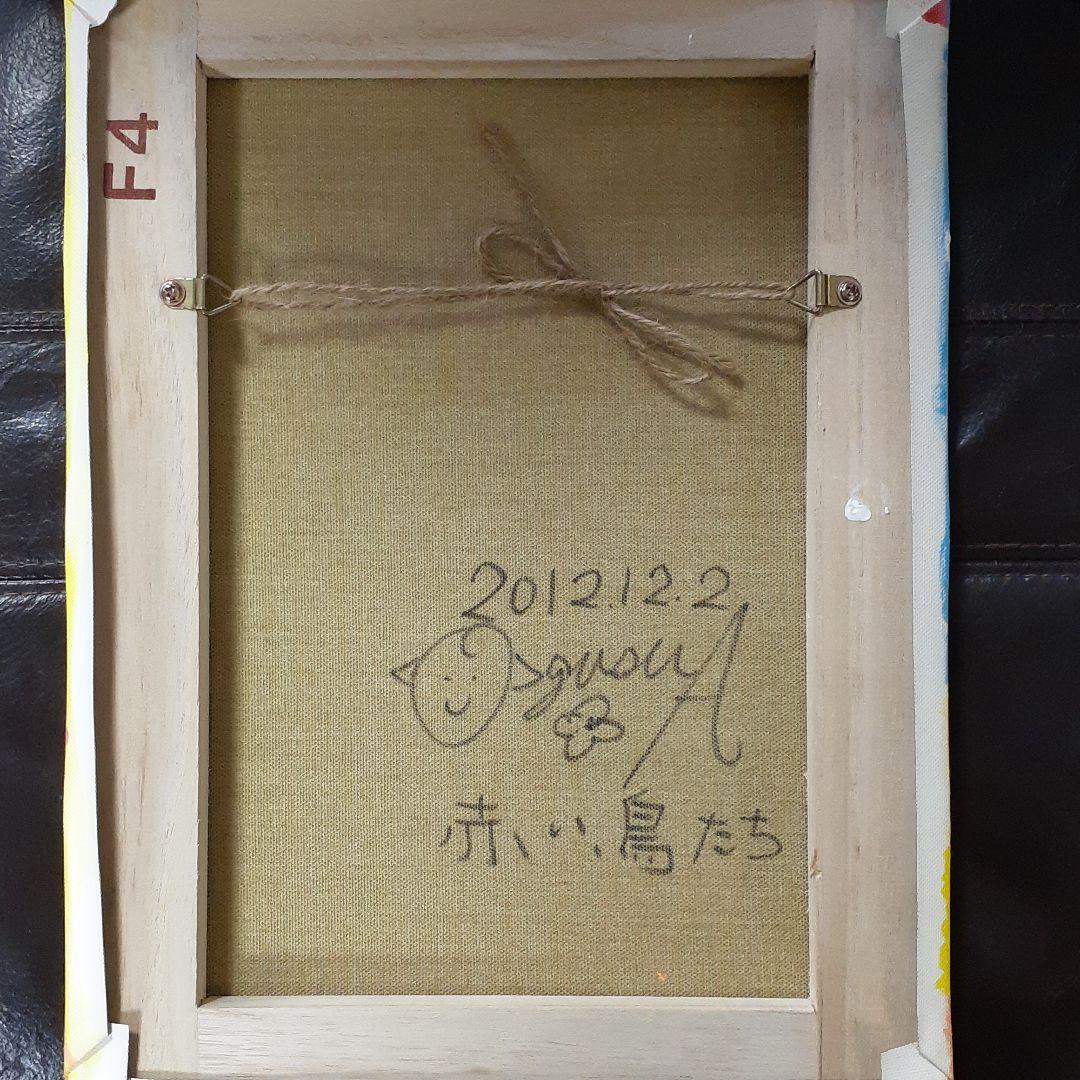 F4
2012.12.2
赤い鳥たち